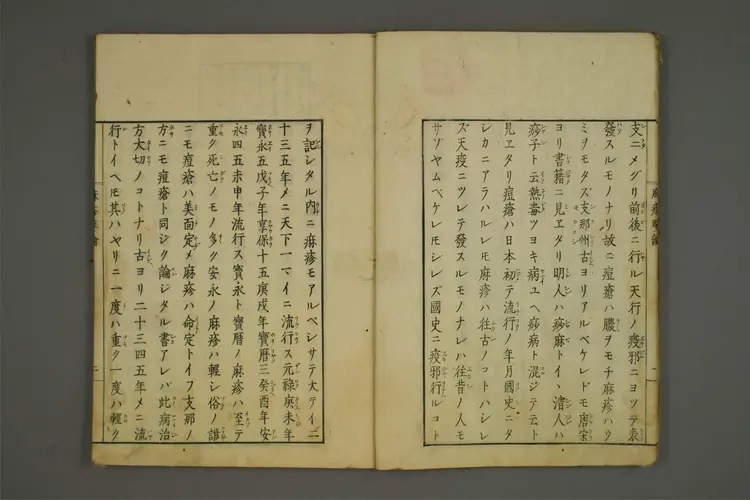 支ニメグリ前後ニ行ル天行ノ疫邪ニヨツテ表
發スルモノナリ故ニ痘瘡ハ膿ヲモチ麻疹ハウ
ミヲモタズ支那州古ヨリアルベケレドモ唐宋
ヨリ書籍ニ見ヱタリ明人ハ痧麻トイヽ清人ハ
痧子ト云熱毒ツヨキ病ユヘ痧病ト混ジテ云ト
見ヱタリ痘瘡ハ日本初テ流行ノ年月國史ニタ
シカニアラハルレモ麻疹ハ往古ノコトハシレ
ズ天疫ニツレテ發スルモノナレハ往昔ノ人モ
サゾヤムベケレモシレズ國史ニ疫邪行ルコト
ヲ記シタル内ニ麻疹モアルベシサテ大テイ二
十三五年メニ天下一マイニ流行ス元禄庚未年
寶永五戊子年享保十五庚戌年寶暦三癸酉年安
永四五未申年流行ス寶永ト寶暦ノ麻疹ハ至テ
重ク死亡ノモノ多ク安永ノ麻疹ハ輕シ俗ノ諺
ニモ痘瘡ハ美面定メ麻疹ハ命定トイフ支那ノ
方ニモ痘瘡ト同シク論ジタル書アレバ此病治
方大切ノコトナリ古ヨリ二十三四五年メニ流
行トイヘモ其ハヤリニ一度ハ重ク一度ハ輕ク